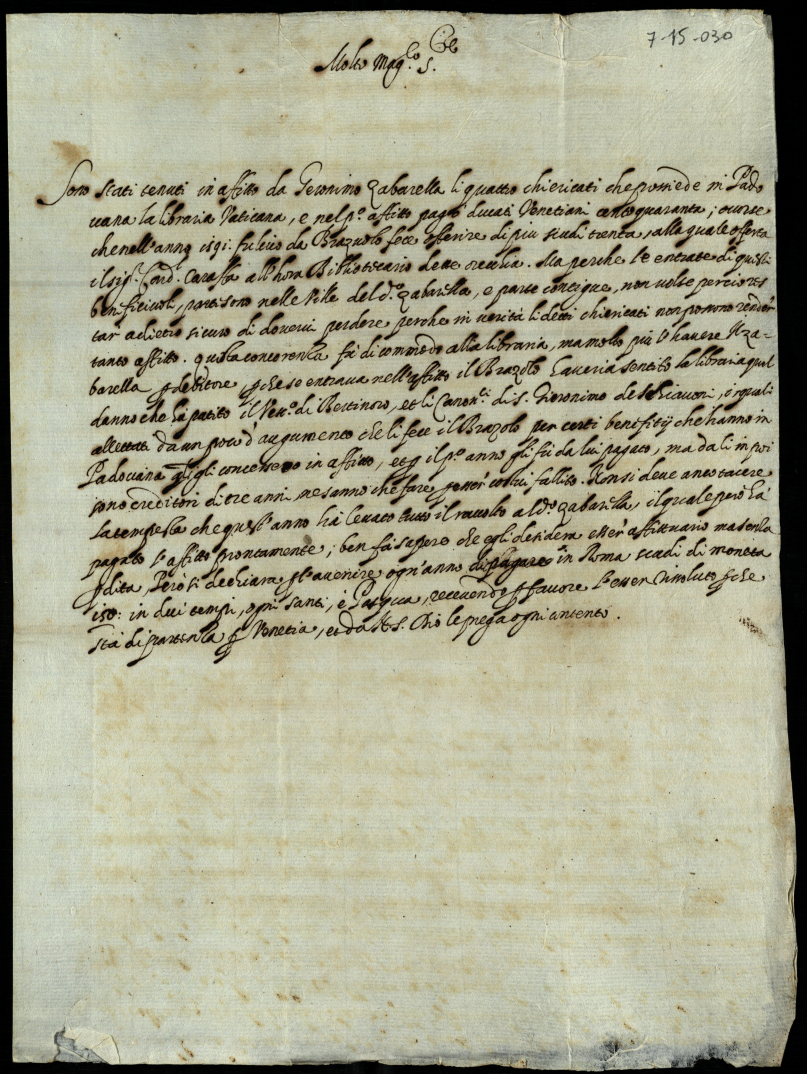 7-15-030
Molto Mag.co S.
Sono stati tenuti in affitto da Geronimo Zabarella li quattro chiericati che possiede in Pado
uana la libraria Vaticana, e nel p.o affitto pagò ducati Venetiani cento quaranta; occorse
che nell'anno 1591. fuluio da Brazuolo fece offerire di piu scudi trenta, alla quale offerta
il sig.r Card. Caraffa all'hora Bibliotecario dette orechia. Ma perche l'entrate di questi
beneficiuoli, parti sono nelle Ville del d.o Zabarella, e parte contigue, non volse perciò res
tar adietro sicuro di doverui perdere perche in verità li detti chiericati non possono render
tanto affitto. questa concorenza fù di commodo alla libraria, ma molto più l'havere il za-
barella per debitore perche se entraua nell'affitto il Brazolo haueria sentito la libraria quel
danno che hà patito il Vesc.o di Bertinoro, et li Canon.ci di S. Gieronimo de Schiauoni, i quali
allettati da un poco d'augumento che li fece il Brazolo per certi benefitij che hanno in
Padouana gli concessero in affitto, et per il p.o anno gli fù da lui pagato, ma da li in poi
sono creditori di tre anni, ne sanno che fare per esser costui fallito. Non si deve anco tacere
la tempesta che quest'anno hà leuato tutto il raccolto al d.o Zabarella, il quale però hà
pagato l'affitto prontamente; ben fà sapere che egli desidera esser affittuario ma senza
perdita, Però si dechiara per l'auenire ogn'anno di pagare in Roma scudi di moneta
150: in dui tempi, ogni santi, e Pasqua, receuendo per fauore l'esser risoluto perche
stà di partenza per Venetia, et da N. S. Dio le prega ogni contento.